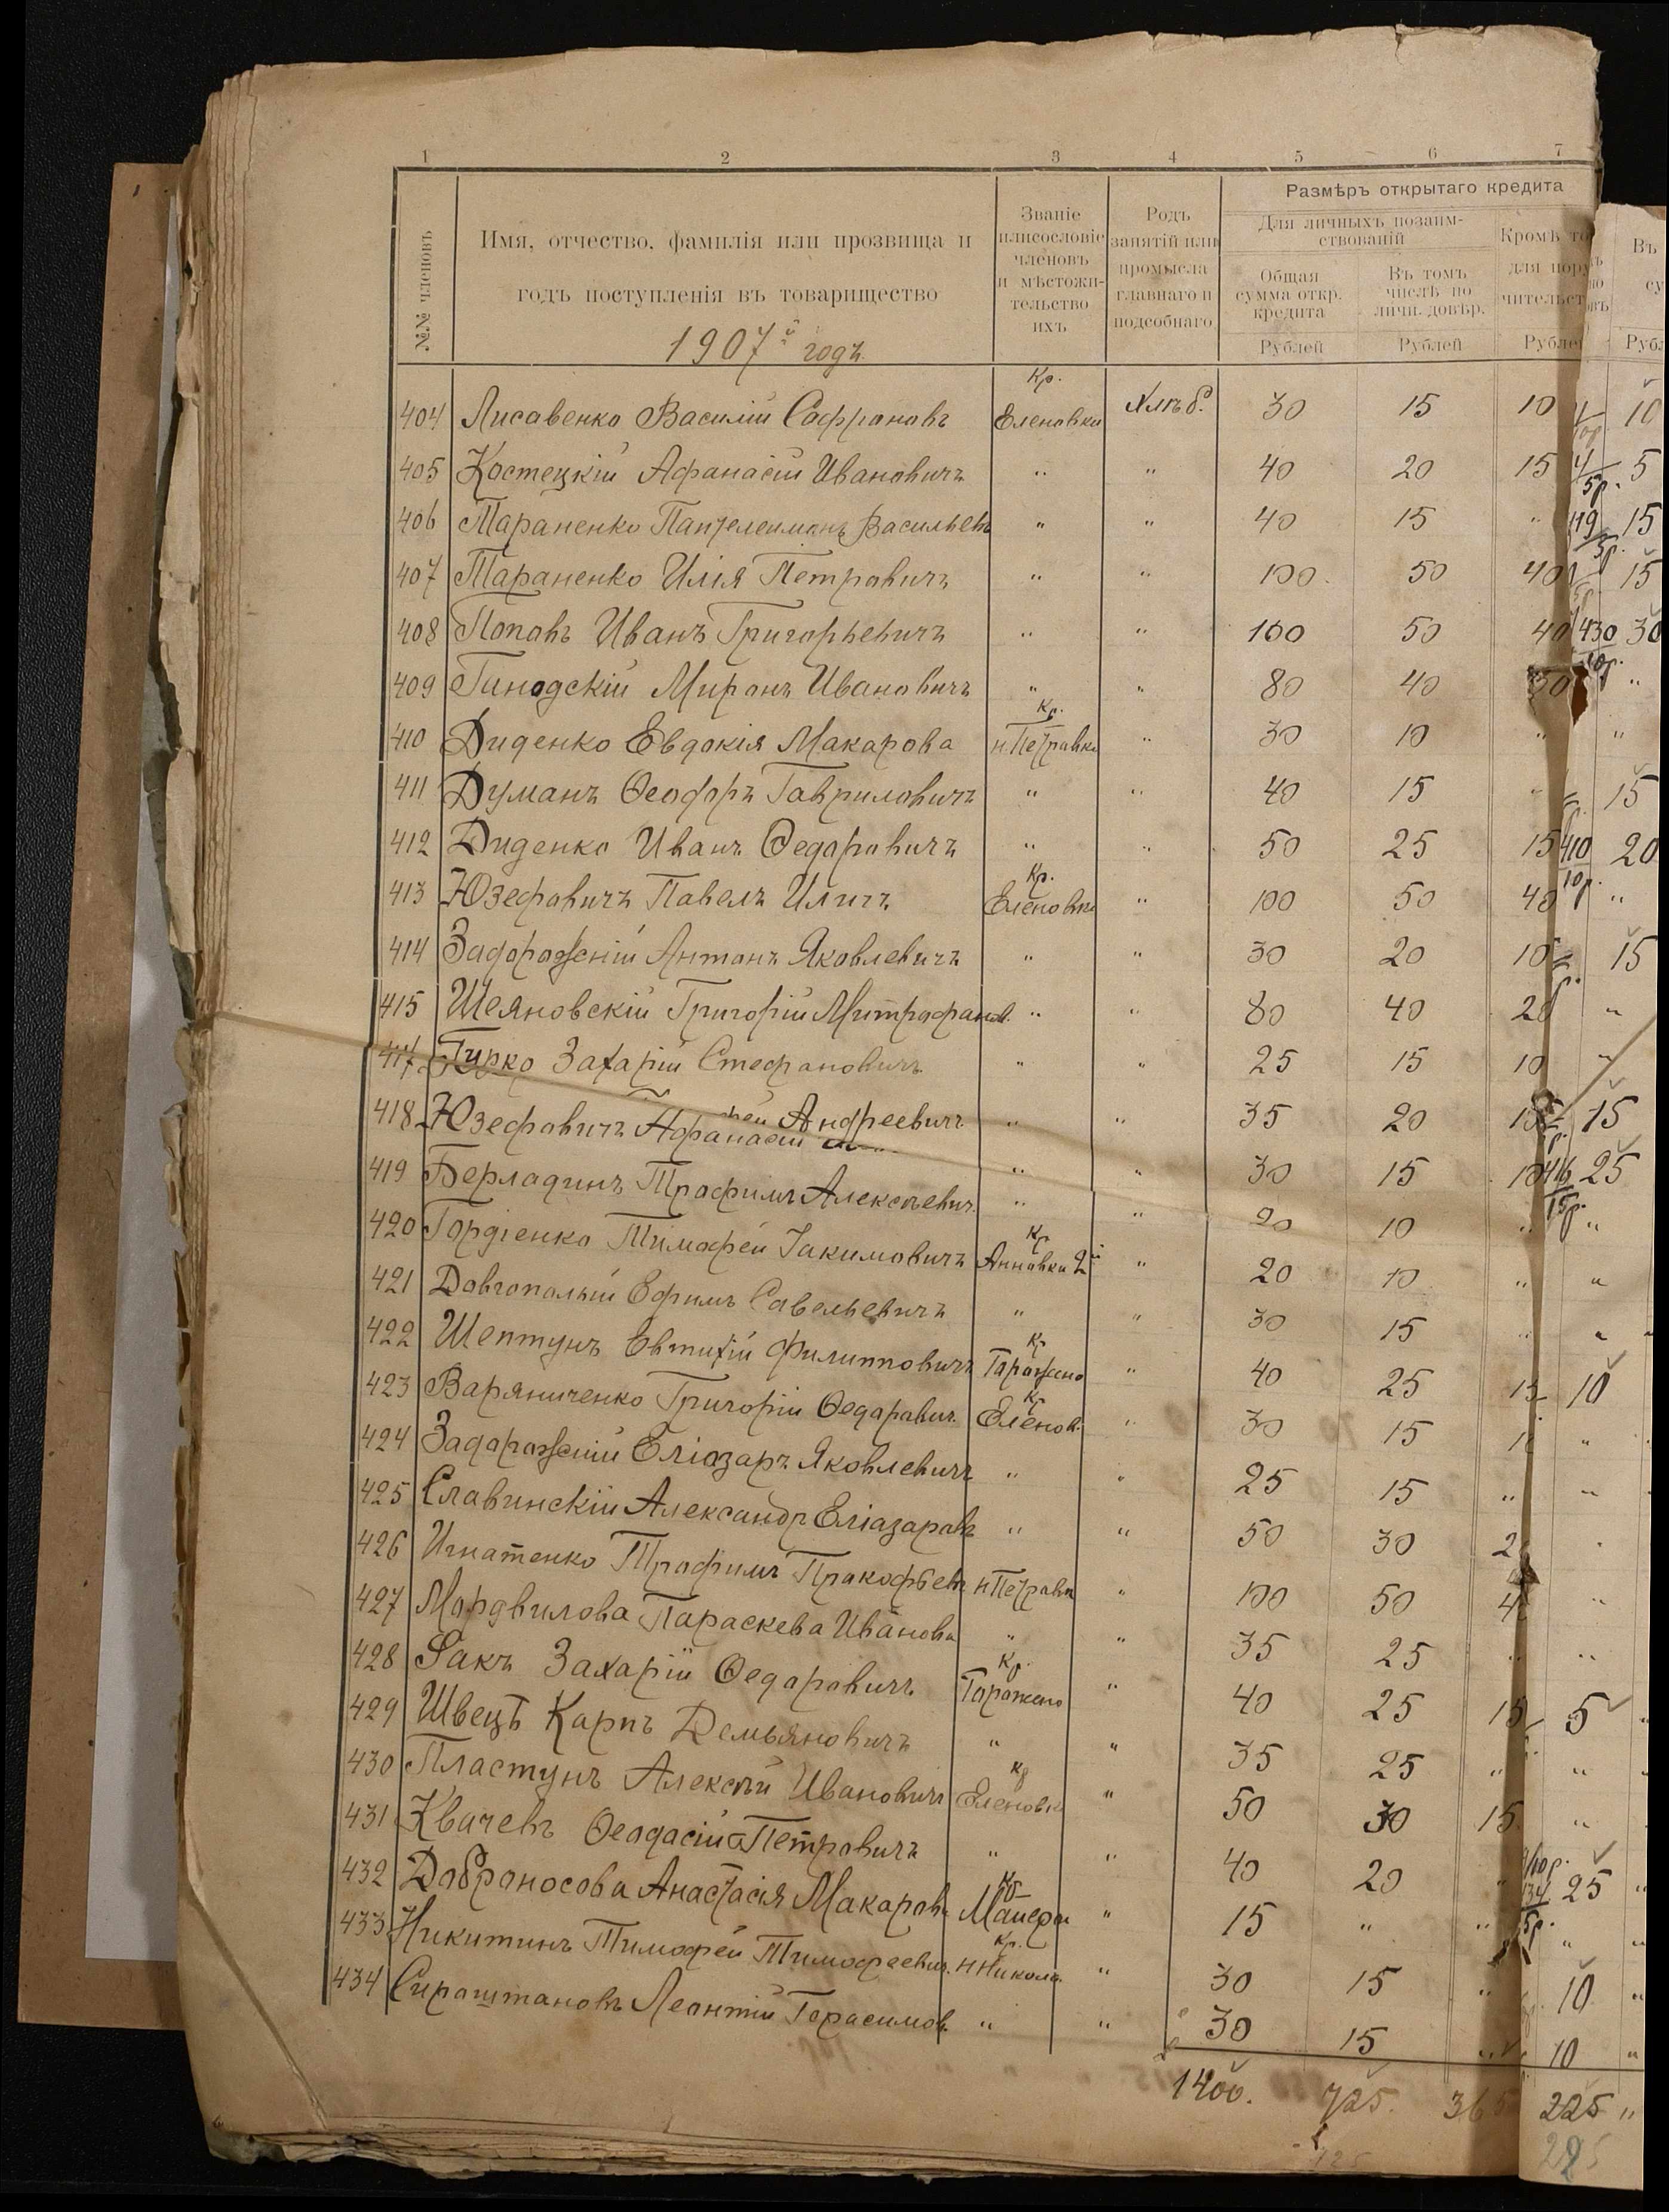 1 2 3 4 5 6 7
№№ членовъ
Имя, отчество, фамилія или прозвища и
годъ поступленія въ товарищество
1907й годъ.
Званіе
илисословіе
членовъ
и мѣстожи-
тельство
ихъ
Родъ
занятій или
промысла
главнаго и
подсобнаго
Размѣръ открытаго кредита
Для личныхъ позаим-
ствованій
Общая
сумма откр.
кредита
Рублей
Въ томъ
числѣ по
личн. довѣр.
Рублей
Кромѣ то
для пору
чительст
Рубле
Въ
су
Руб
404 Лисавенко Василій Сафроновъ Кр. Еленовки Хлѣб. 30 15 10 10
405 Костецкій Афанасій Ивановичъ " " 40 20 15 5
406 Тараненко Пантелеимонъ Васильевъ " " 40 15 " 15
407 Тараненко Илія Петровичъ " " 100 50 40 15
408 Поповъ Иванъ Григорьевичъ " " 100 50 40 30
409 Гинодскій Миронъ Ивановичъ " " 80 40 "
410 Диденко Евдокія Макарова Кр. н.Петровки " 30 10 " "
411 Думанъ Ѳеодоръ Гавриловичъ " " 40 15 " 15
412 Диденко Иванъ Ѳедоровичъ " " 50 25 15 20
413 Юзефовичъ Павелъ Иличъ Кр. Еленовки " 100 50 40 "
414 Задорожній Антонъ Яковлевичъ " " 30 20 10 15
415 Шеяновскій Григорій Митрофанов. " " 80 40 20 "
417 Гирко Захарій Стефановичъ " " 25 15 10 "
418 Юзефовичъ Афанасій Андреевичъ " " 35 20 10 15
419 Берладинъ Трофимъ Алексѣевич. " " 30 15 10 25
420 Гордіенко Тимофей Іакимовичъ Кр Анновки 2й " 20 10 " "
421 Довгополый Ефимъ Савельевичъ " " 20 10 " "
422 Шептунъ Евтихій Филипповичъ Кр Горожено " 30 15 " "
423 Варяниченко Григорій Ѳедоровичъ Кр Еленов. " 40 25 15 10
424 Задорожній Еліазаръ Яковлевичъ " " 30 15 "
425 Славинскій Александр Еліазаровъ " " 25 15 " "
426 Игнатенко Трофимъ Прокофьевъ н Петровки " 50 30
427 Мордвилова Параскева Иванова " " 100 50 "
428 Закъ Захарій Ѳедоровичъ Кр. Горожено " 35 25 " "
429 Швецъ Карпъ Демьяновичъ " " 40 25 15 5
430 Пластунъ Алексѣй Ивановичъ Кр Еленовки " 35 25 " "
431 Квачевъ Ѳеодосій Петровичъ " " 50 30 15 "
432 Доброносова Анастасія Макарова Кр " 40 20 " 25
433 Никитинъ Тимофей Тимофеевич. Кр. н Никола. " 15 " " "
434 Сироштановъ Леонтій Герасимов. " " 30 15 " 10
30 15 " 10
1400. 725. 365 225 "